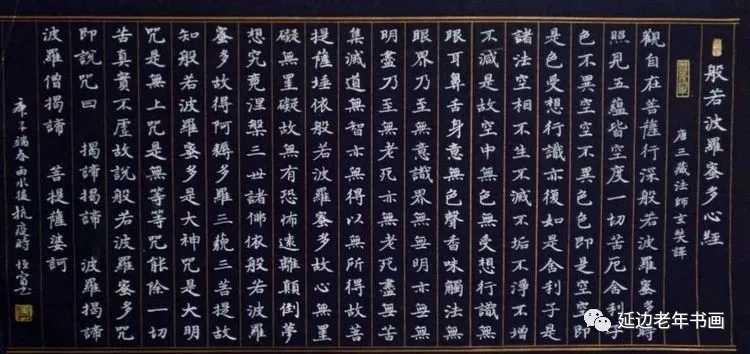 般若波羅蜜多心經
唐三藏法師玄奘譯
觀自在菩薩行深般若波羅蜜多時
照見五蘊皆空度一切苦厄舍利子
色不異空空不異色色即是空空即
是色受想行識亦復如是舍利子是
諸法空相不生不滅不垢不淨不增
不減是故空中無色無受想行識無
眼耳鼻舌身意無色聲香味觸法無
眼界乃至無意識界無無明亦無無
明盡乃至無老死亦無老死盡無苦
集滅道無智亦無得以無所得故菩
提薩埵依般若波羅蜜多故心無罣
礙無罣礙故無有恐怖遠離顛倒夢
想究竟涅槃三世諸佛依般若波羅
蜜多故得阿耨多羅三藐三菩提故
知般若波羅蜜多是大神咒是大明
咒是無上咒是無等等咒能除一切
苦真實不虛故說般若波羅蜜多咒
即說咒曰 揭諦揭諦 波羅揭諦
波羅僧揭諦 菩提薩婆訶
庚子端春雨水後抗疫時
延边老年书画